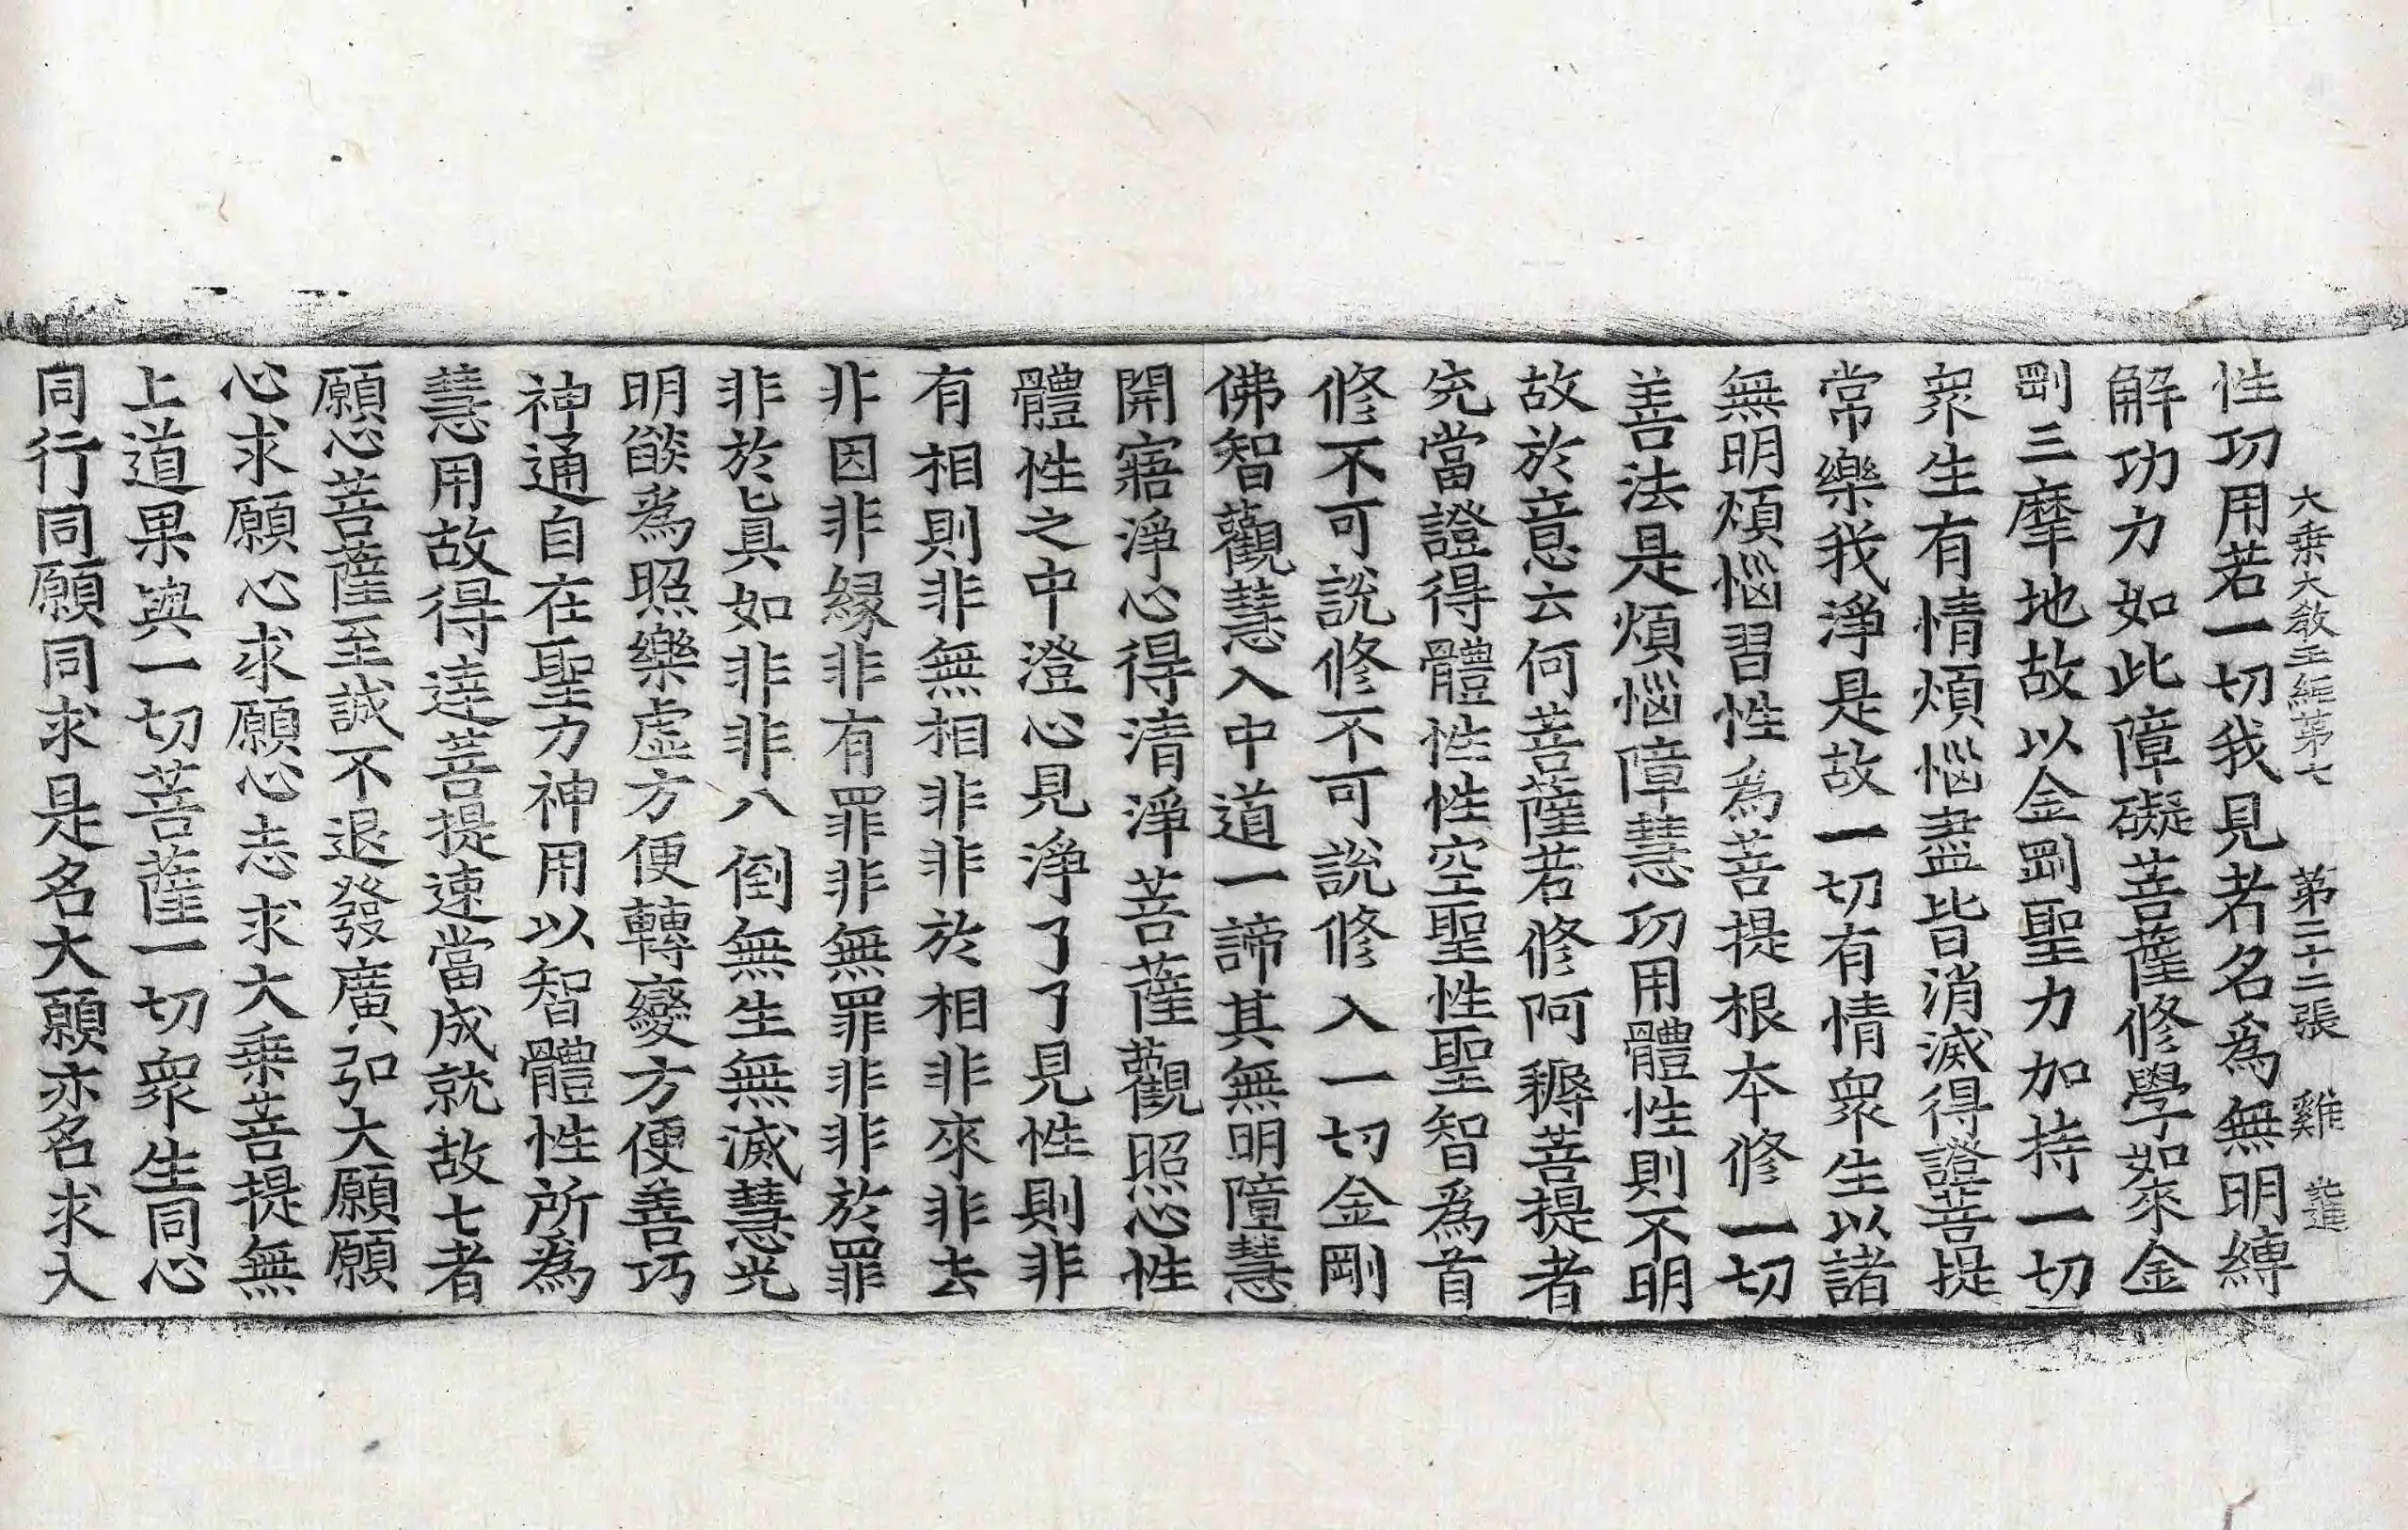 大乗大教王經第七　第二十二張　雞
性功用若一切我見者名為無明縛
解功力如此障礙菩薩修學如來金
剛三摩地故以金剛聖力加持一切
衆生有情煩惱盡皆消滅得證菩提
常樂我淨是故一切有情衆生以諸
無明煩惱習性為菩提根本修一切
善法是煩惱障慧功用體性則不明
故於意云何菩薩若修阿耨菩提者
究當證得體性性空聖性聖智為首
修不可說修不可說修入一切金剛
佛智觀慧入中道一諦其無明障慧
開寤淨心得清淨菩薩觀照心性
體性之中澄心見淨了了見性則非
有相則非無相非非於相非來非去
非因非緣非有罪非無罪非非於罪
非於具如非非八倒無生無滅慧光
明燄為照樂虛方便轉變方便善巧
神通自在聖力神用以智體性所為
慧用故得達菩提速當成就故七者
願心菩薩至誠不退發廣弘大願願
心求願心求願心志求大乗菩提無
上道果與一切菩薩一切衆生同心
同行同願同求是名大願亦名求入